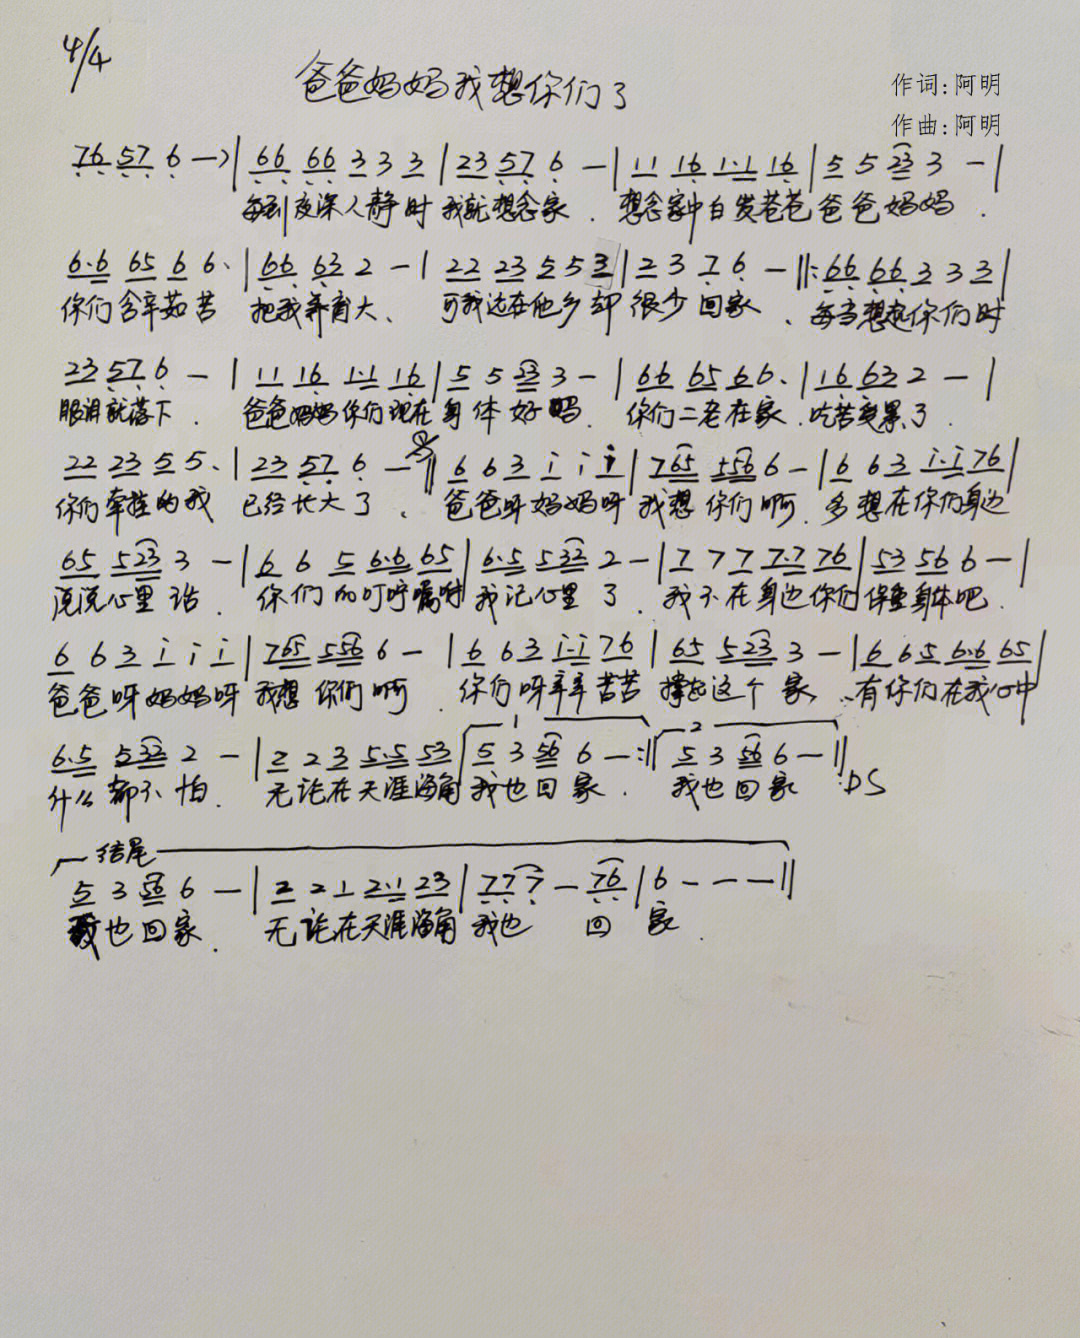 4/4
爸爸妈妈我想你们了
作词:阿明
作曲:阿明
76 57 6 —>| 66 66 3 3 3 | 23 57 6 — | 11 16 1·1 16 | 5 5 23 3 — |
每到夜深人静时 我就想念家 . 想念家中白发苍苍爸爸妈妈 .
6·6 65 6 6· | 66 63 2 — | 22 23 5 5 3 | 2 3 7 6 — ‖: 66 66 3 3 3 |
你们含辛茹苦 把我养育大、 可我远在他乡却 很少回家 、每当想起你们时
23 57 6 — | 11 16 1·1 16 | 5 5 23 3 — | 66 65 6 6· | 16 63 2 — |
眼泪就落下 . 爸爸妈妈你们现在身体好吗 . 你们二老在家 . 吃苦受累了 .
22 23 5 5· | 23 57 6 — ‖ 6 6 3 i i i | 765 556 6 — | 6 6 3 i·i 76 |
你们牵挂的我 已经长大了 、 爸爸呀妈妈呀 我想你们啊 . 多想在你们身边
65 523 3 — | 6 6 5 6·6 65 | 6·5 532 2 — | 7 7 7 7·7 76 | 53 56 6 — |
说说心里话 . 你们的叮咛嘱咐 我记心里了 . 我不在身边你们保重身体吧 .
6 6 3 i i i | 765 556 6 — | 6 6 3 i·i 76 | 65 523 3 — | 6 6 5 6·6 65 |
爸爸呀妈妈呀 我想你们啊 . 你们呀辛辛苦苦 撑起这个家、 有你们在我心中
1 2
6·5 532 2 — | 2 2 3 5·5 53 | 5 3 56 6 — :‖ 5 3 56 6 — ‖ DS
什么都不怕 . 无论在天涯海角 我也回家 . 我也回家
结尾
5 3 56 6 — | 2 2 1 2·1 23 | 77 7 — 76 | 6 — — — ‖
我也回家 . 无论在天涯海角 我也 回 家 .